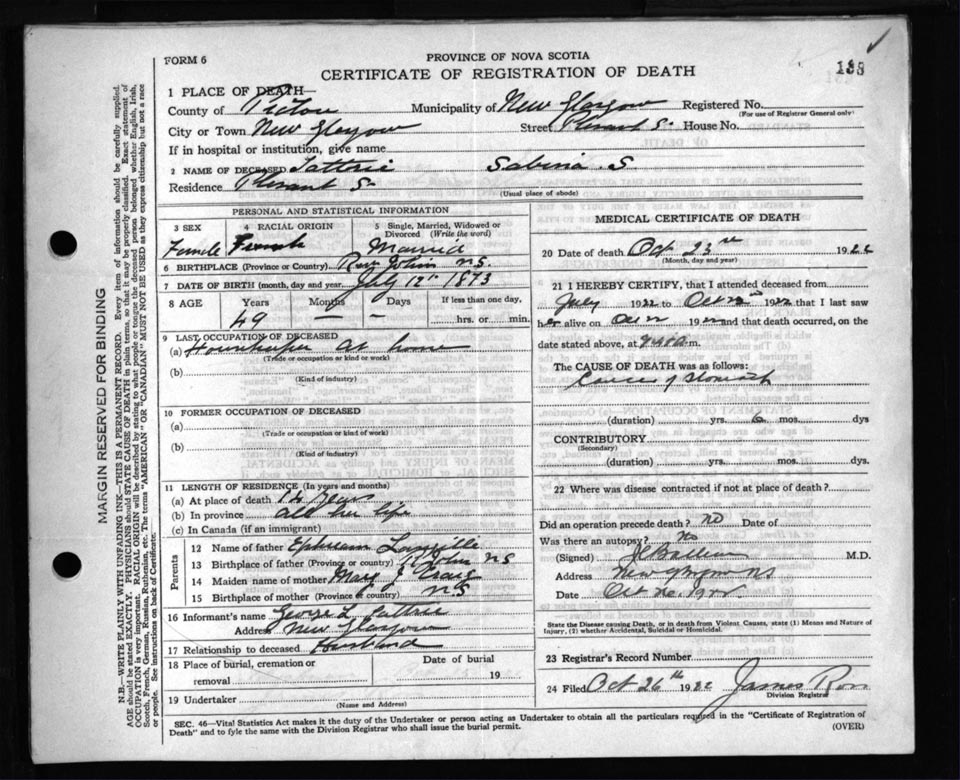 FORM 6
PROVINCE OF NOVA SCOTIA
CERTIFICATE OF REGISTRATION OF DEATH
188
1 PLACE OF DEATH—
County of Pictou Municipality of New Glasgow Registered No.
(For use of Registrar General only)
City or Town New Glasgow Street Plesant S. House No.
If in hospital or institution, give name
2 NAME OF DECEASED Sabina S
Residence Plesant S.
(Usual place of abode)
PERSONAL AND STATISTICAL INFORMATION
3 SEX
Female
4 RACIAL ORIGIN
French
5 Single, Married, Widowed or Divorced (Write the word)
Married
6 BIRTHPLACE (Province or Country) River John N.S.
7 DATE OF BIRTH (month, day and year) July 12th 1873
8 AGE Years Months Days If less than one day,
49 — — hrs. or min.
9 LAST OCCUPATION OF DECEASED
(a) at home
(Trade or occupation or kind of work)
(b)
(Kind of industry)
10 FORMER OCCUPATION OF DECEASED
(a)
(Trade or occupation or kind of work)
(b)
(Kind of industry)
11 LENGTH OF RESIDENCE (In years and months)
(a) At place of death years
(b) In province all her life
(c) In Canada (if an immigrant)
Parents
12 Name of father Ephream
13 Birthplace of father (Province or country) R John N S
14 Maiden name of mother Mary J Craig
15 Birthplace of mother (Province or country) N.S
16 Informant's name George L
Address New Glasgow
17 Relationship to deceased Husband
18 Place of burial, cremation or removal
Date of burial
19
19 Undertaker
(Name and Address)
MEDICAL CERTIFICATE OF DEATH
20 Date of death Oct 23rd 1922
(Month, day and year)
21 I HEREBY CERTIFY, that I attended deceased from
July 1922 to Oct 22 1922 that I last saw
her alive on Oct 22 1922 and that death occurred, on the
date stated above, at m.
The CAUSE OF DEATH was as follows:
Cancer of Stomach
(duration) yrs. 6 mos. dys
CONTRIBUTORY
(Secondary)
(duration) yrs. mos. dys.
22 Where was disease contracted if not at place of death?
Did an operation precede death? no Date of
Was there an autopsy? No
(Signed) M.D.
Address New Glasgow N.S
Date Oct 26, 1922
State the Disease causing Death, or in death from Violent Causes, state (1) Means and Nature of
Injury, (2) whether Accidental, Suicidal or Homicidal.
23 Registrar's Record Number
24 Filed Oct 26th 1922 James Ross
Division Registrar
SEC. 46—Vital Statistics Act makes it the duty of the Undertaker or person acting as Undertaker to obtain all the particulars required in the "Certificate of Registration of
Death" and to fyle the same with the Division Registrar who shall issue the burial permit.
(OVER)
MARGIN RESERVED FOR BINDING
N.B.—WRITE PLAINLY WITH UNFADING INK—THIS IS A PERMANENT RECORD. Every item of information should be carefully supplied.
AGE should be stated EXACTLY. PHYSICIANS should STATE CAUSE OF DEATH in plain terms, so that it may be properly classified. Exact statement of
OCCUPATION is very important. RACIAL ORIGIN will be described by stating to what people or tongue the deceased person belonged whether English, Irish,
Scotch, French, German, Russian, Ruthenian, etc. The terms "AMERICAN" OR "CANADIAN" MUST NOT BE USED as they express citizenship but not a race
or people. See instructions on back of Certificate.